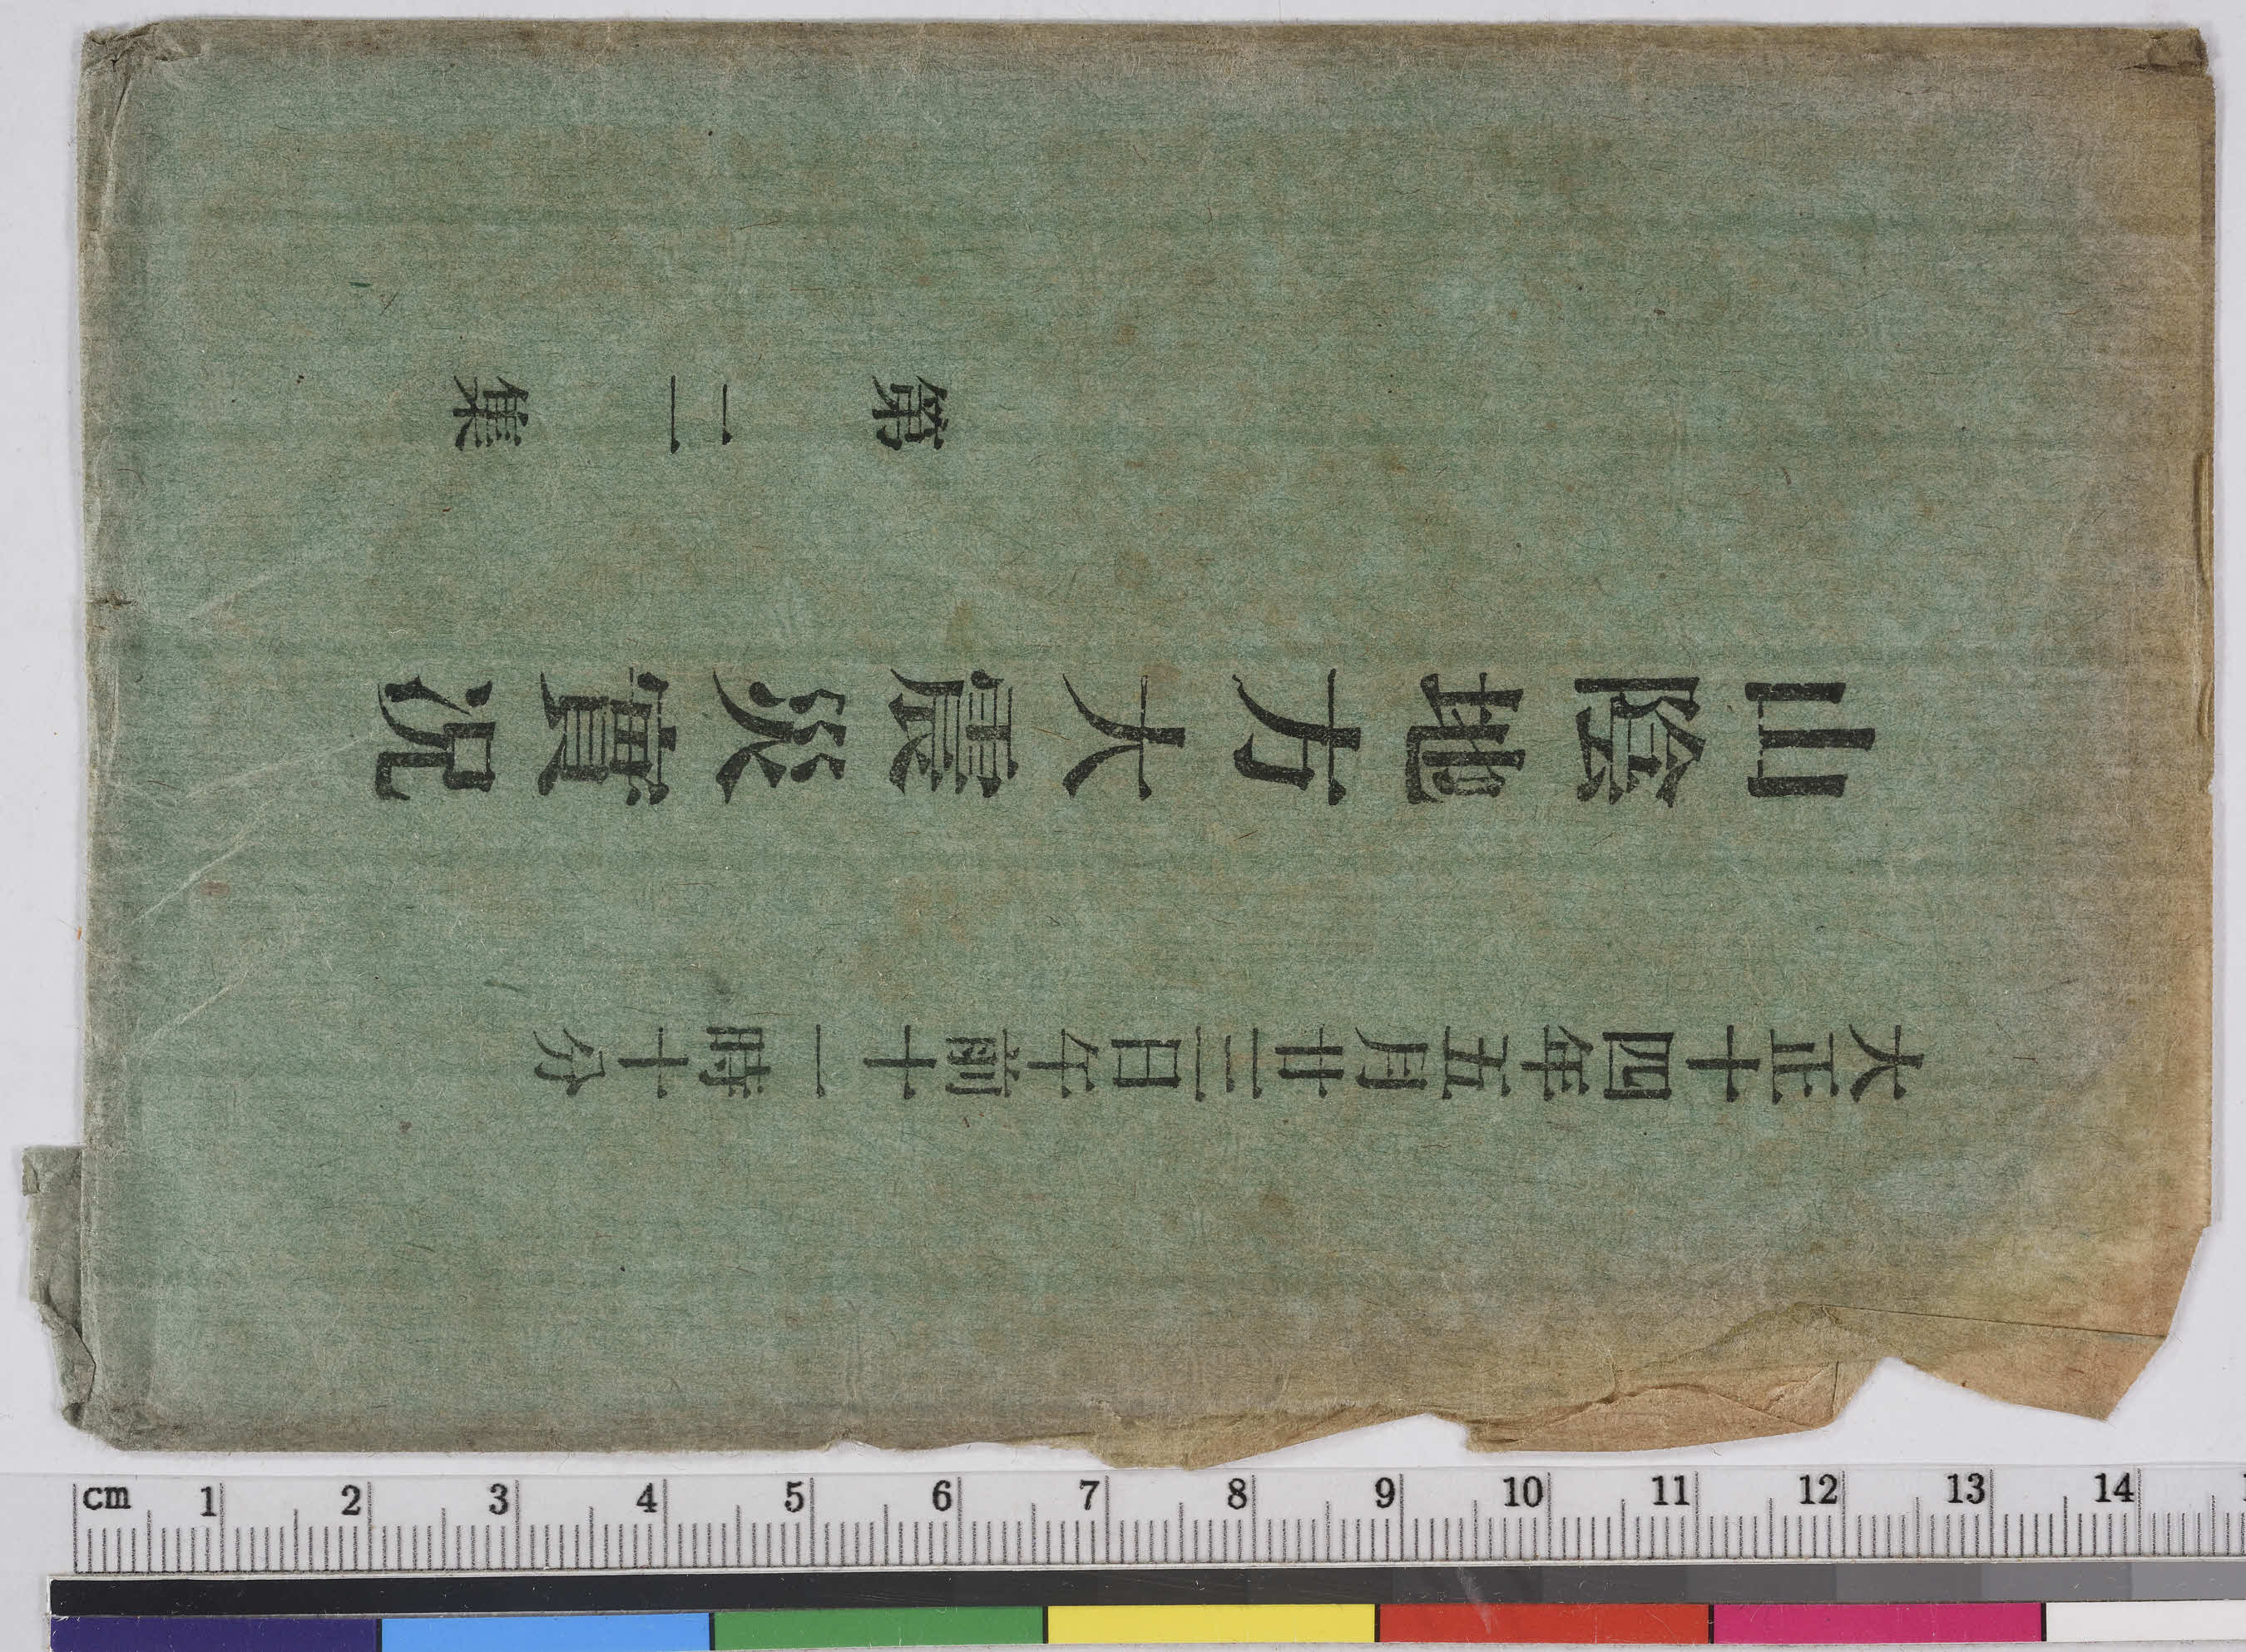 大正十四年五月廿三日午前十一時十分
山陰地方大震災實況
第二集
cm 1 2 3 4 5 6 7 8 9 10 11 12 13 14